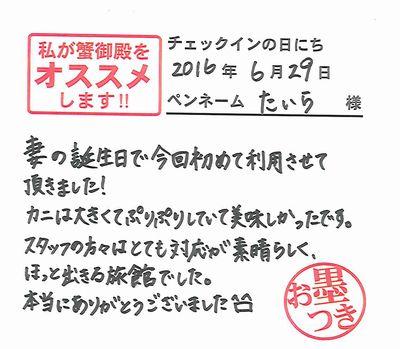 私が蟹御殿を
オススメ
します!!
チェックインの日にち
2016年 6月29日
ペンネーム たいら 様
妻の誕生日で今回初めて利用させて
頂きました!
カニは大きくてぷりぷりしていて美味しかったです。
スタッフの方々はとても対応が素晴らしく、
ほっと出きる旅館でした。
本当にありがとうございました
お墨
つき